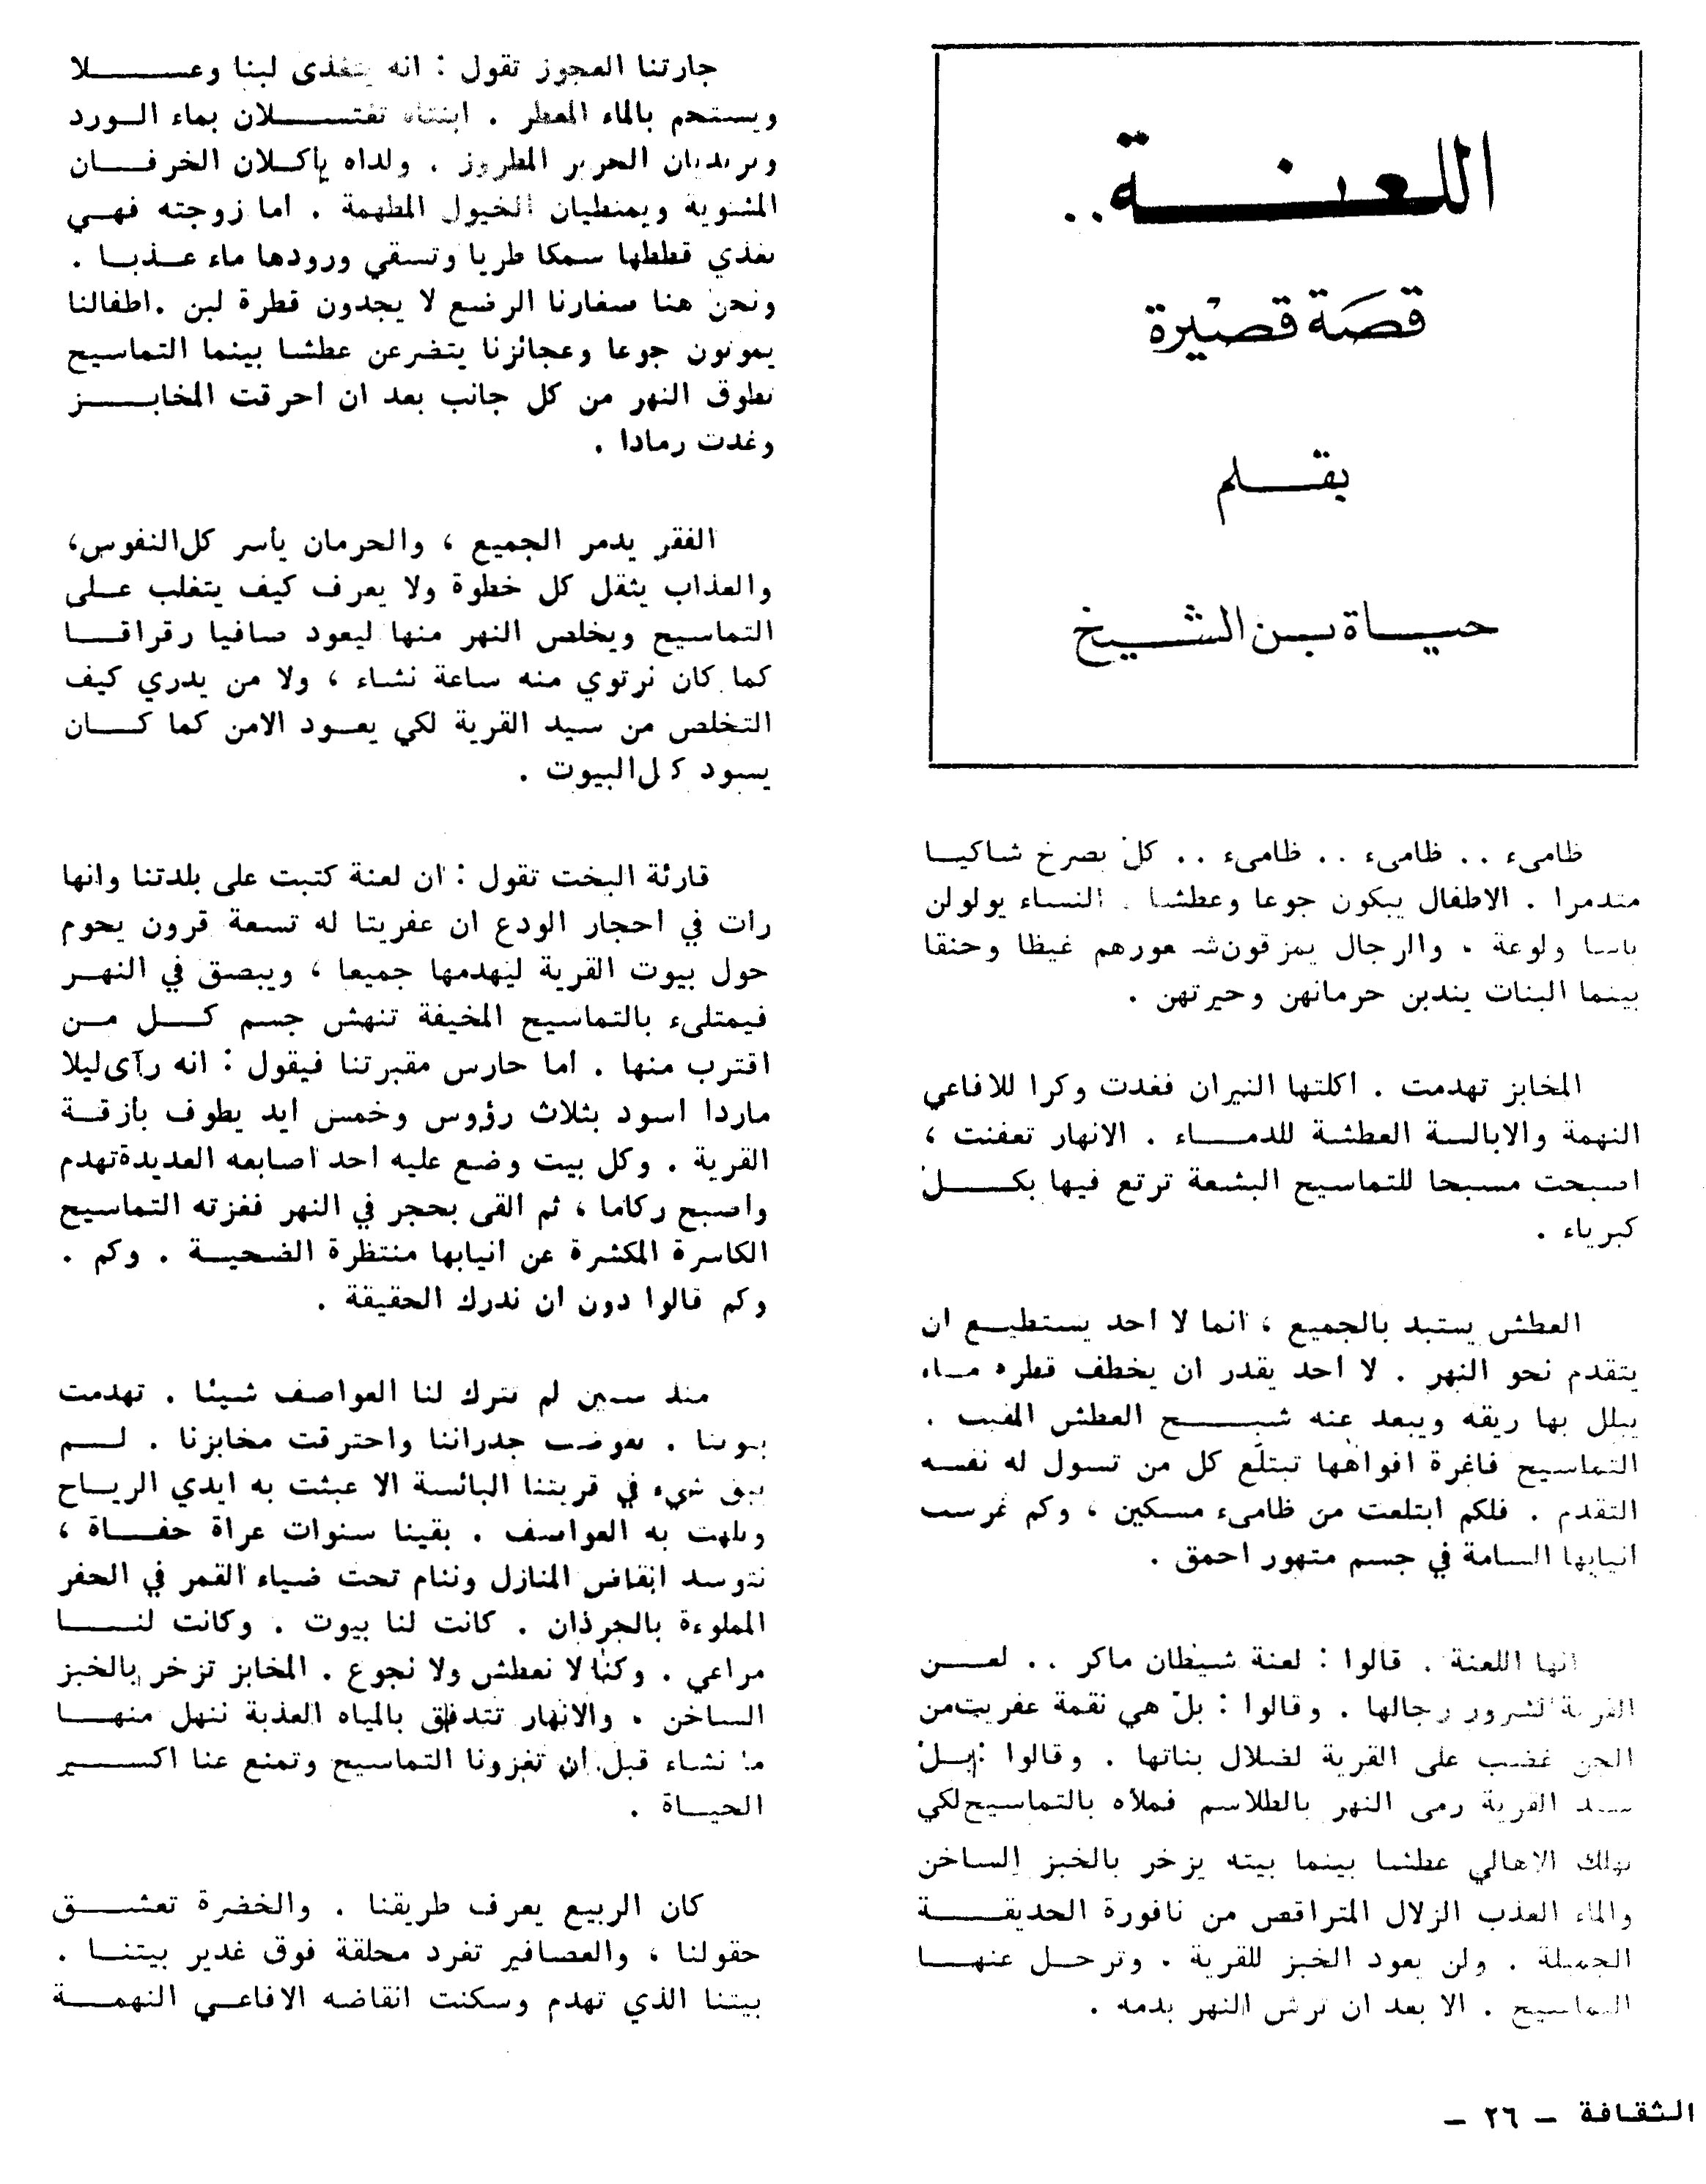 اللعنة ..
قصة قصيرة
بقلم
حياة بن الشيخ
ظامىء .. ظامىء .. ظامىء .. كل يصرخ شاكيا
متذمرا . الاطفال يبكون جوعا وعطشا . النساء يولولن
ياسا ولوعة . والرجال يمزقون شعورهم غيظا وحنقا
بينما البنات يندبن حرمانهن وحيرتهن .
المخابز تهدمت . اكلتها النيران فغدت وكرا للافاعي
النهمة والابالسة العطشة للدماء . الانهار تعفنت ،
اصبحت مسبحا للتماسيح البشعة ترتع فيها بكل
كبرياء .
العطش يستبد بالجميع ، انما لا احد يستطيع ان
يتقدم نحو النهر . لا احد يقدر ان يخطف قطرة ماء
يبلل بها ريقه ويبعد عنه شبح العطش المقيت .
التماسيح فاغرة افواهها تبتلع كل من تسول له نفسه
التقدم . فلكم ابتلعت من ظامىء مسكين ، وكم غرست
انيابها السامة في جسم متهور احمق .
انها اللعنة . قالوا : لعنة شيطان ماكر .. لعن
القرية لشرور رجالها . وقالوا : بل هي نقمة عفريت من
الجن غضب على القرية لضلال بناتها . وقالوا : بل
سيد القرية رمى النهر بالطلاسم فملأه بالتماسيح لكي
يهلك الاهالي عطشا بينما بيته يزخر بالخبز الساخن
والماء العذب الزلال المتراقص من نافورة الحديقة
الجميلة . ولن يعود الخبز للقرية . وترحل عنها
التماسيح . الا بعد ان ترش النهر بدمه .
جارتنا العجوز تقول : انه يتغذى لبنا وعسلا
ويستحم بالماء المعطر . ابنتاه تغتسلان بماء الورد
وترتديان الحرير المطروز . ولداه يأكلان الخرفان
المشوية ويمتطيان الخيول المطهمة . اما زوجته فهي
تغذي قططها سمكا طريا وتسقي ورودها ماء عذبا .
ونحن هنا صغارنا الرضع لا يجدون قطرة لبن . اطفالنا
يموتون جوعا وعجائزنا يتضرعن عطشا بينما التماسيح
تطوق النهر من كل جانب بعد ان احرقت المخابز
وغدت رمادا .
الفقر يدمر الجميع ، والحرمان يأسر كل النفوس ،
والعذاب يثقل كل خطوة ولا يعرف كيف يتغلب على
التماسيح ويخلص النهر منها ليعود صافيا رقراقا
كما كان نرتوي منه ساعة نشاء ، ولا من يدري كيف
التخلص من سيد القرية لكي يعود الامن كما كان
يسود كل البيوت .
قارئة البخت تقول : ان لعنة كتبت على بلدتنا وانها
رات في احجار الودع ان عفريتا له تسعة قرون يحوم
حول بيوت القرية ليهدمها جميعا ، ويبصق في النهر
فيمتلىء بالتماسيح المخيفة تنهش جسم كل من
اقترب منها . اما حارس مقبرتنا فيقول : انه رآى ليلا
ماردا اسود بثلاث رؤوس وخمس ايد يطوف بازقة
القرية . وكل بيت وضع عليه احد اصابعه العديدة تهدم
واصبح ركاما ، ثم القى بحجر في النهر فغزته التماسيح
الكاسرة المكشرة عن انيابها منتظرة الضحية . وكم .
وكم قالوا دون ان ندرك الحقيقة .
منذ سنين لم تترك لنا العواصف شيئا . تهدمت
بيوتنا . تقوضت جدراننا واحترقت مخابزنا . لم
يبق شيء في قريتنا البائسة الا عبثت به ايدي الرياح
ولهت به العواصف . بقينا سنوات عراة حفاة ،
نتوسد انقاض المنازل وننام تحت ضياء القمر في الحفر
المملوءة بالجرذان . كانت لنا بيوت . وكانت لنا
مراعي . وكنا لا نعطش ولا نجوع . المخابز تزخر بالخبز
الساخن . والانهار تتدفق بالمياه العذبة ننهل منها
ما نشاء قبل ان تغزونا التماسيح وتمنع عنا اكسير
الحياة .
كان الربيع يعرف طريقنا . والخضرة تعشق
حقولنا ، والعصافير تغرد محلقة فوق غدير بيتنا .
بيتنا الذي تهدم وسكنت انقاضه الافاعي النهمة
الثقافة - ٢٦ -